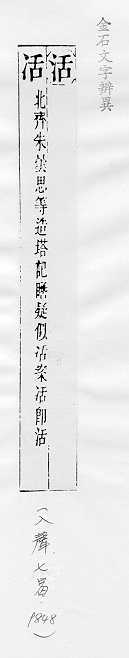 金石文字辨異
活
活 北齊朱曇思等造塔記瞻疑似活案活即活
(入聲七曷 9848)